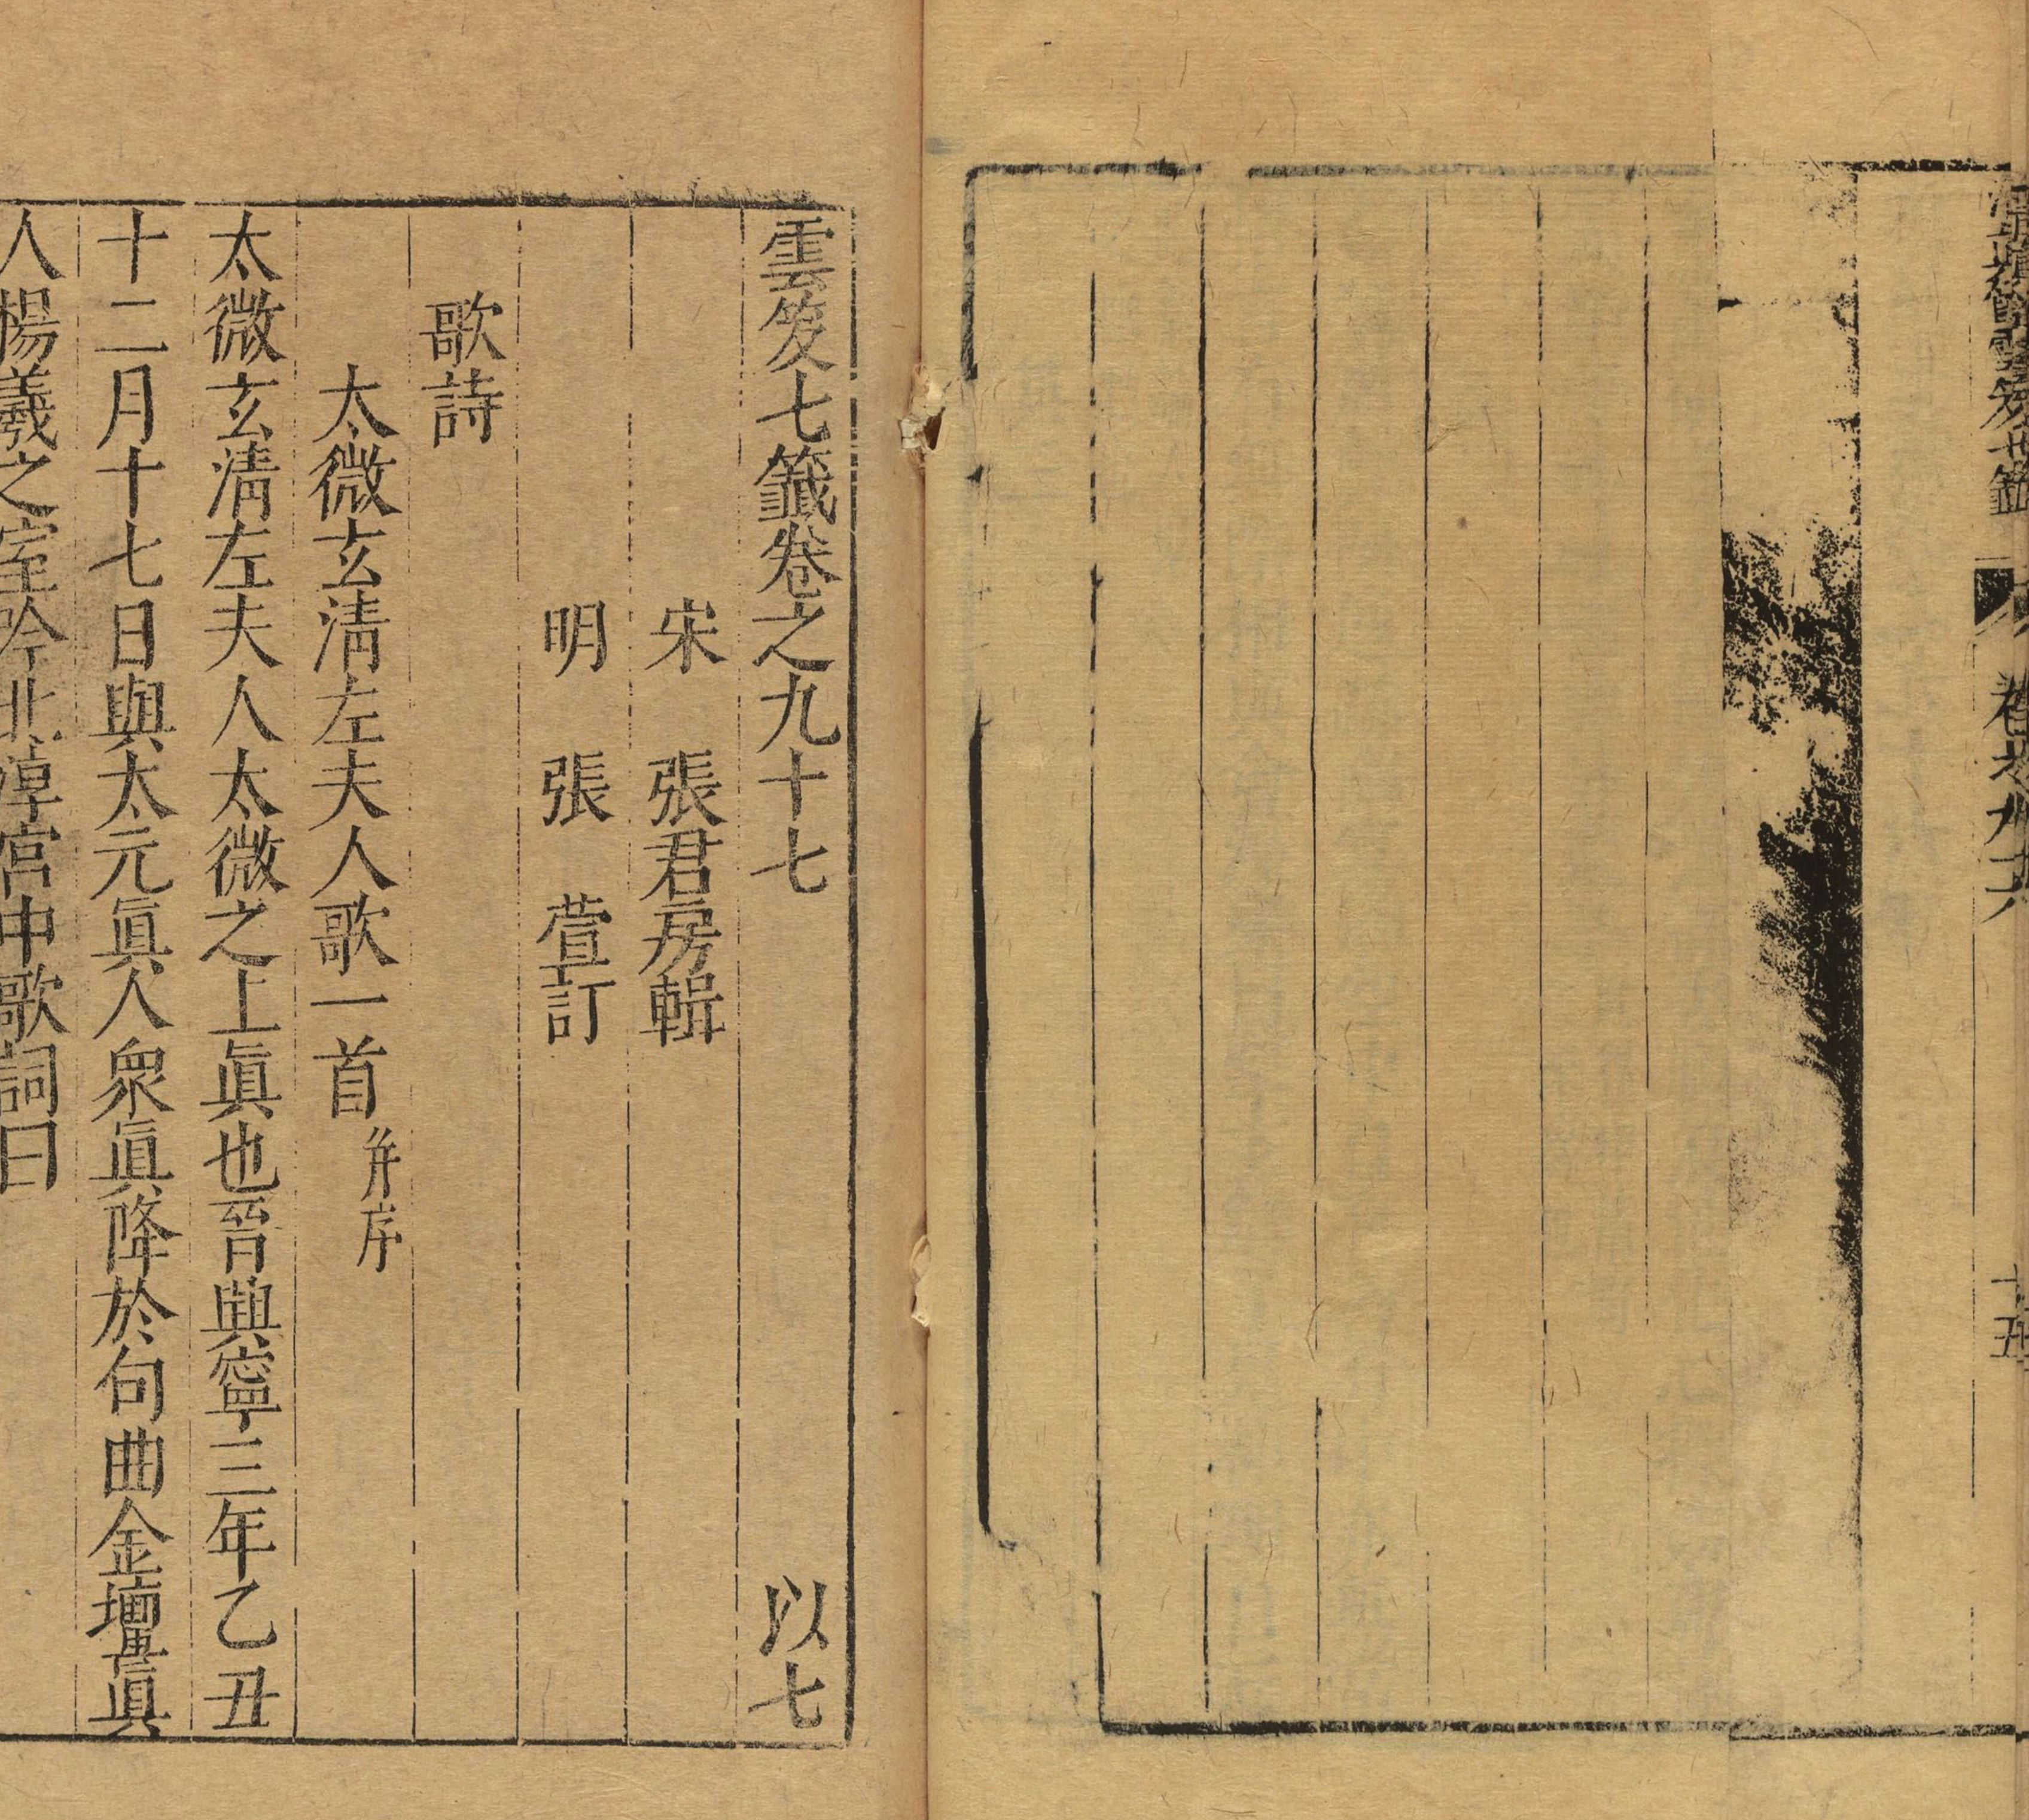 雲笈七籤卷之九十六
十五
雲笈七籤卷之九十七 以七
宋 張君房輯
明 張 萱訂
歌詩
太微玄淸左夫人歌一首 并序
太微玄淸左夫人太微之上眞也晉興寧三年乙丑
十二月十七日與太元眞人衆眞降於句曲金壇眞
人楊羲之室吟北渟宮中歌詞曰